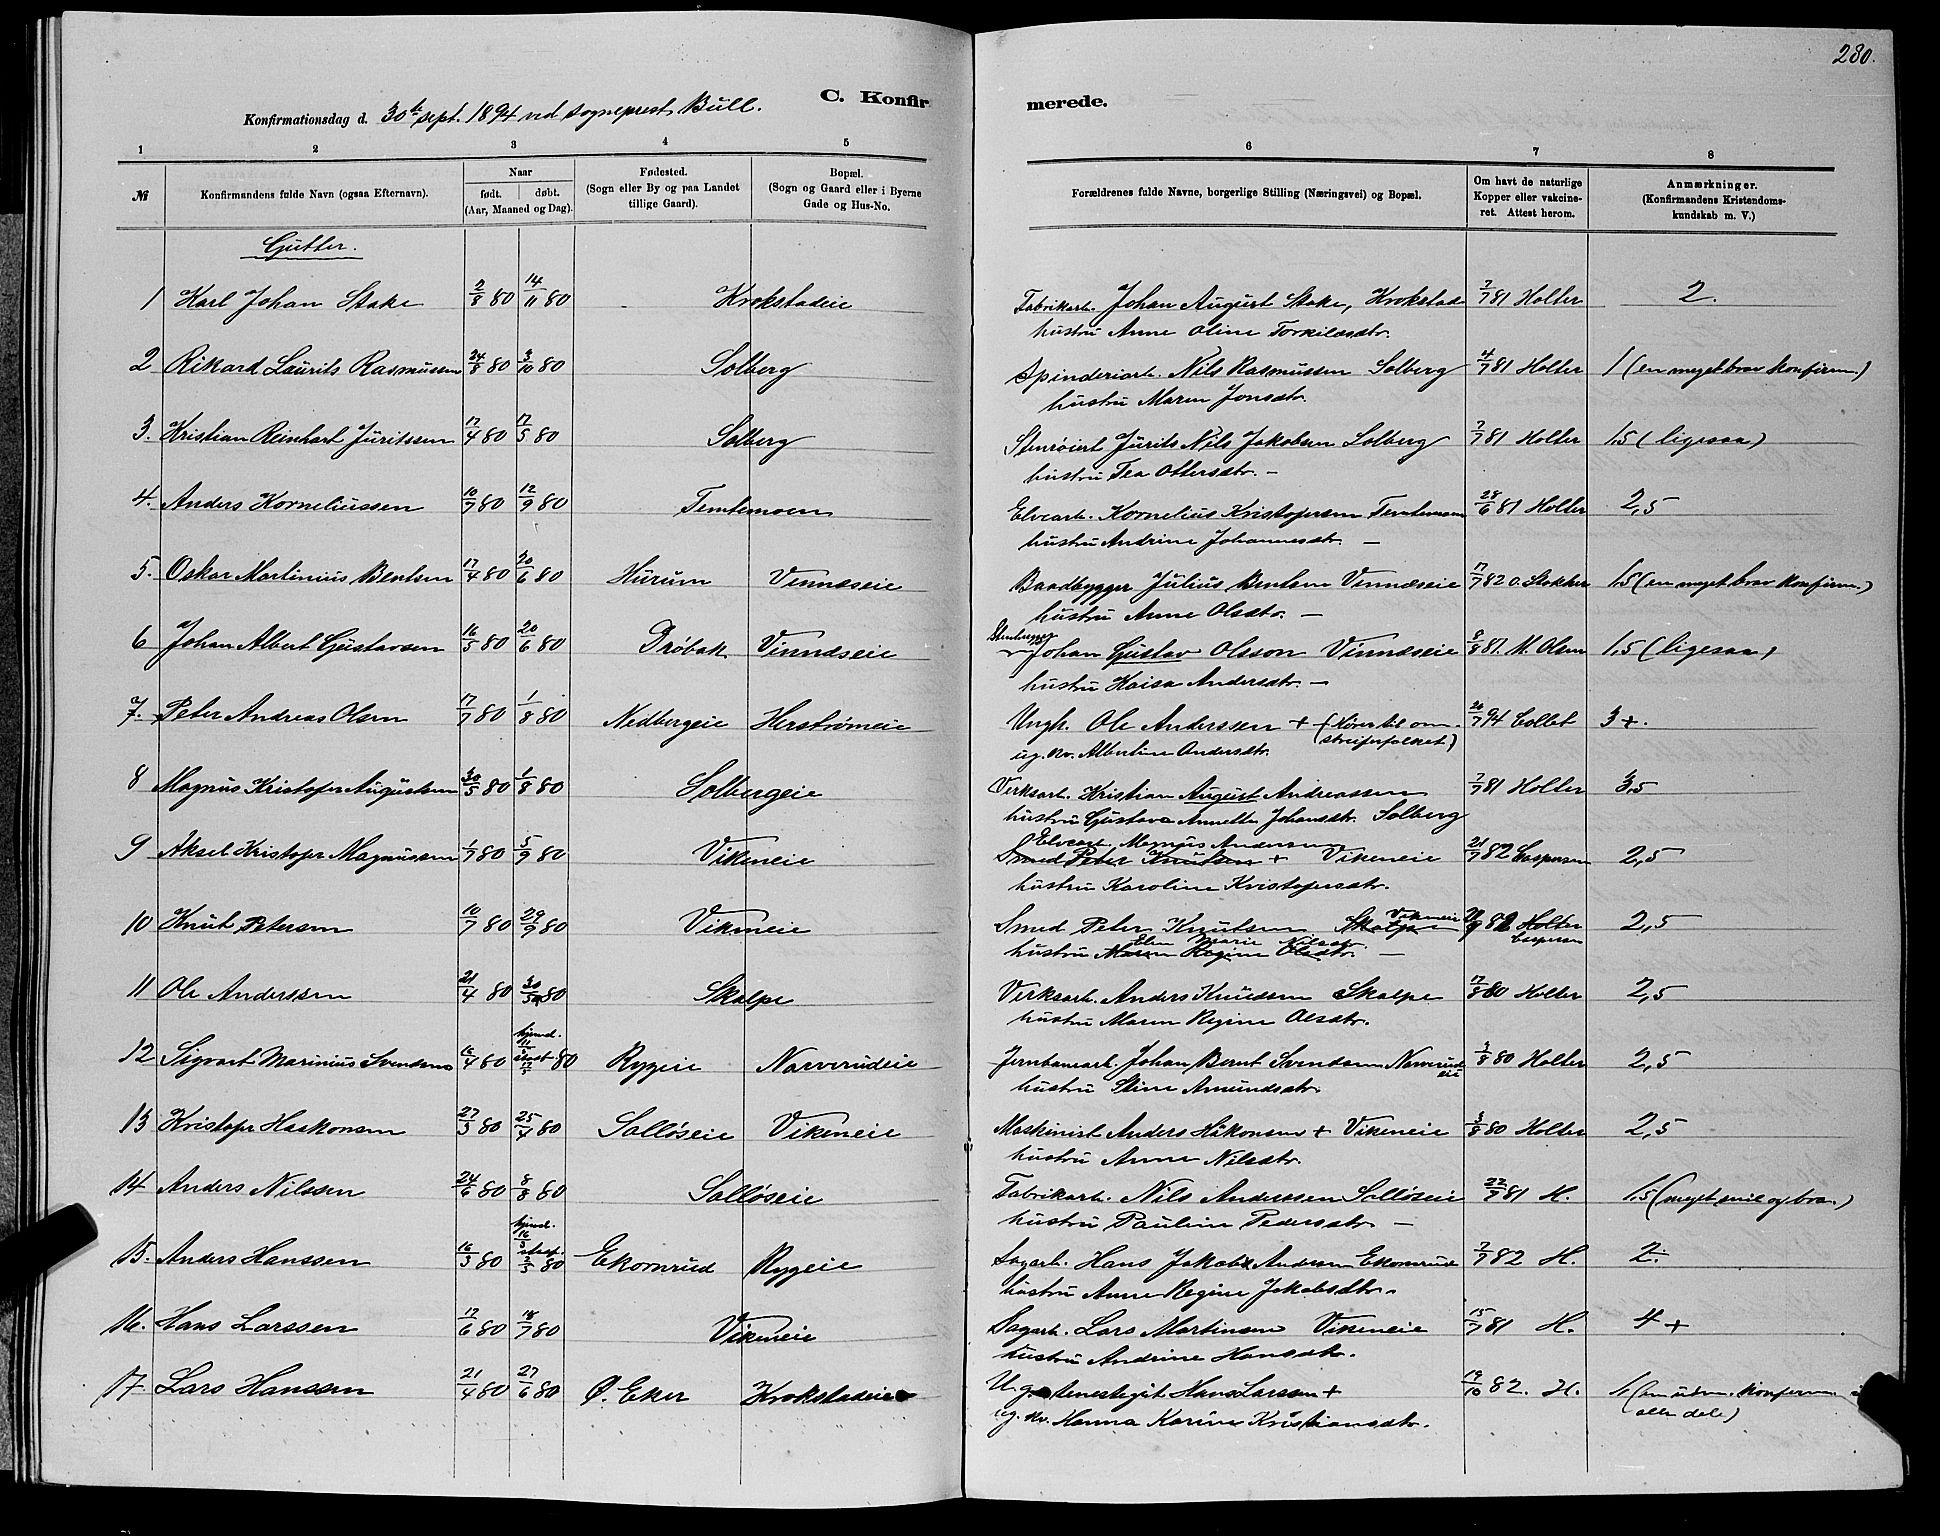 280.
C. Konfirmerede.
Konfirmationsdag d. 30te sept. 1894 ved sogneprest Bull.
1 2 3 4 5 6 7 8
№ Konfirmandens fulde Navn (ogsaa Efternavn). Naar født. døbt. (Aar, Maaned og Dag). Fødested. (Sogn eller By og paa Landet tillige Gaard). Bopæl. (Sogn og Gaard eller i Byerne Gade og Hus-No. Forældrenes fulde Navne, borgerlige Stilling (Næringsvei) og Bopæl. Om havt de naturlige Kopper eller vakcineret. Attest herom. Anmærkninger. (Konfirmandens Kristendomskundskab m. V.)
Gutter.
1 Karl Johan Stake 2/8 80 14/11 80 Krokstadeie Fabrikarb. Johan August Stake, Krokstad 7/7 81 Holter 2.
hustru Anne Oline Torkildsdtr.
2 Rikard Laurits Rasmussen 24/8 80 3/10 80 Solberg Spinderiarb. Nils Rasmussen Solberg 4/7 81 Holter 1 (en meget brav konfirm.)
hustru Maren Jonsdtr.
3. Kristian Reinhart Juritssen 17/4 80 17/5 80 Solberg Jurits Nils Jakobsen Solberg 7/7 81 Holter 1,5 (ligesaa)
hustru Tea Ottersdtr. —
4. Anders Korneliussen 10/7 80 12/9 80 Temtemoen Elvearb. Kornelius Kristofersen Temtemoen 28/6 81 Holter 2,5
hustru Andrine Johannesdtr. —
5. Oskar Martinius Bentsen 17/4 80 20/6 80 Hurum Vinnæseie Baadbygger Julius Bentsen Vinnæseie 17/7 82 O. Stokker 1,5 (en meget brav konfirm.)
hustru Anne Olsdtr. —
6 Johan Albert Gustavsen 16/5 80 20/6 80 Drøbak Vinnæseie Stenhugger Johan Gustav Olsson Vinnæseie 8/8 81. M. Olsen 1,5 (ligesaa)
hustru Kaisa Andersdtr. —
7. Peter Andreas Olsen 17/7 80 1/8 80 Nedbergeie Herstrømeie Ungk. Ole Anderssen + (hører til om- 20/7 94 Collet 3+.
ug. kv. Albertine Andersdtr. streiferfolket)
8 Magnus Kristofer Augustsen 30/5 80 1/8 80 Solbergeie Verksarb. Kristian August Andreassen 7/7 81 Holter 3,5
hustru Gustava Annette Johansdtr. Solberg
Elvearb. Magnus Andersen
9 Aksel Kristofer Magnussen 1/7 80 5/9 80 Vikeneie Smed Peter Knutsen + Vikeneie 21/7 82 Caspersen 2,5
hustru Karoline Kristofersdtr.
10 Knut Petersen 10/7 80 29/9 80 Vikeneie Smed Peter Knutsen Skalpe Vikeneie 82 Holter Caspersen 2,5
Elen Marie Nilsdtr.
hustru Maren Regine Olsdtr. —
11 Ole Anderssen 21/4 80 30/5 80 Skalpe Verksarb. Anders Knudsen Skalpe 17/8 80 Holter 2,5
hustru Maren Regine Olsdtr.
12 Sigvart Marinius Svendsen 10/4 80 hjemd. stadf. 80 Rygeie Narverudeie Jernbanearb. Johan Bernt Svendsen Narverudeie 3/8 80 Holter 2,5
hustru Stine Amundsdtr.
13 Kristofer Haakonsen 27/3 80 25/4 80 Solløseie Vikeneie Maskinist Anders Håkonsen + Vikeneie 3/8 80 Holter 2,5
hustru Anne Nilsdtr.
14 Anders Nilssen 24/6 80 8/8 80 Solløseie Fabrikarb. Nils Anderssen Solløseie 22/7 81 H. 1,5 (meget snil og bra.)
hustru Pauline Pedersdtr. —
15. Anders Hanssen 16/3 80 hjemd. 16/3 stadf. 2/5 80 Ekornrud Rygeie Sagarb. Hans Jakob Andersen Ekornrud 7/7 82 H. 2.
hustru Anne Regine Jakobsdtr.
16. Hans Larssen 17/6 80 18/7 80 Vikeneie Sagarb. Lars Martinsen Vikeneie 15/7 81 H. 4 +
hustru Andrine Hansdtr.
17 Lars Hanssen 21/4 80 27/6 80 Ø. Eker Krokstadeie U.g. tenestegut Hans Larssen + 19/10 82. H. 1 (en udm. konfirm. i
ug. kv. Hanna Karine Kristiansdtr. alle dele)